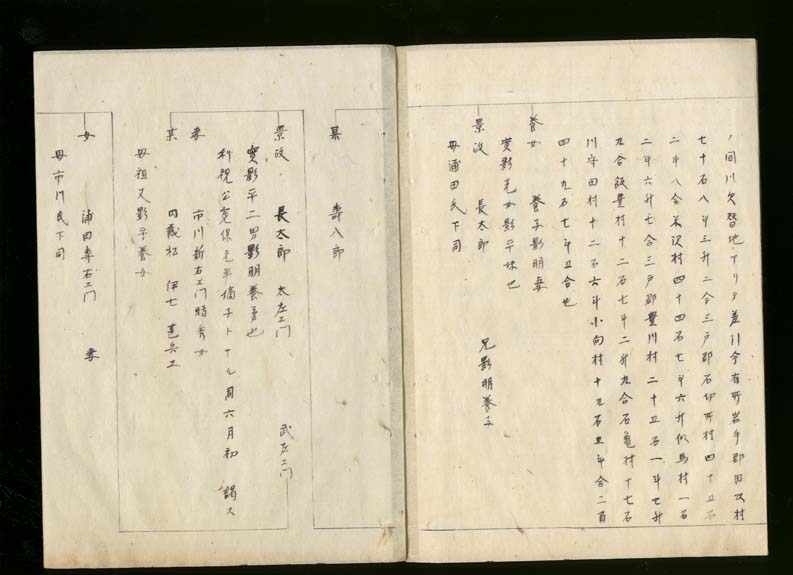 同川欠替地アリテ差引今有所岩手郡田頭村
七十石八斗三升二合三戸郡石切所村四十五石
二斗八合米沢村四十四石七斗六升似鳥村一石
二斗六升七合三戸郡豊川村二十五石一斗七升
九合飯豊村十二石七斗二升九合石亀村十七石
川守田村十二石六斗小向村十九石五斗合二百
四十九石七斗五合也
養女 養子影明妻
實影光女影平妹也
景政 長太郎 兄影明養子
母浦田氏下同
某 壽八郎
景政 長太郎 太左エ門 武左エ門
實影平二男影明養子也
利視公寛保元年嫡子ト十七同六月初謁ス
妻 市川新右エ門晴秀女
某 四歳松 伊七 甚兵エ
母祖父影平養女
女 浦田専右エ門 妻
母市川氏下同